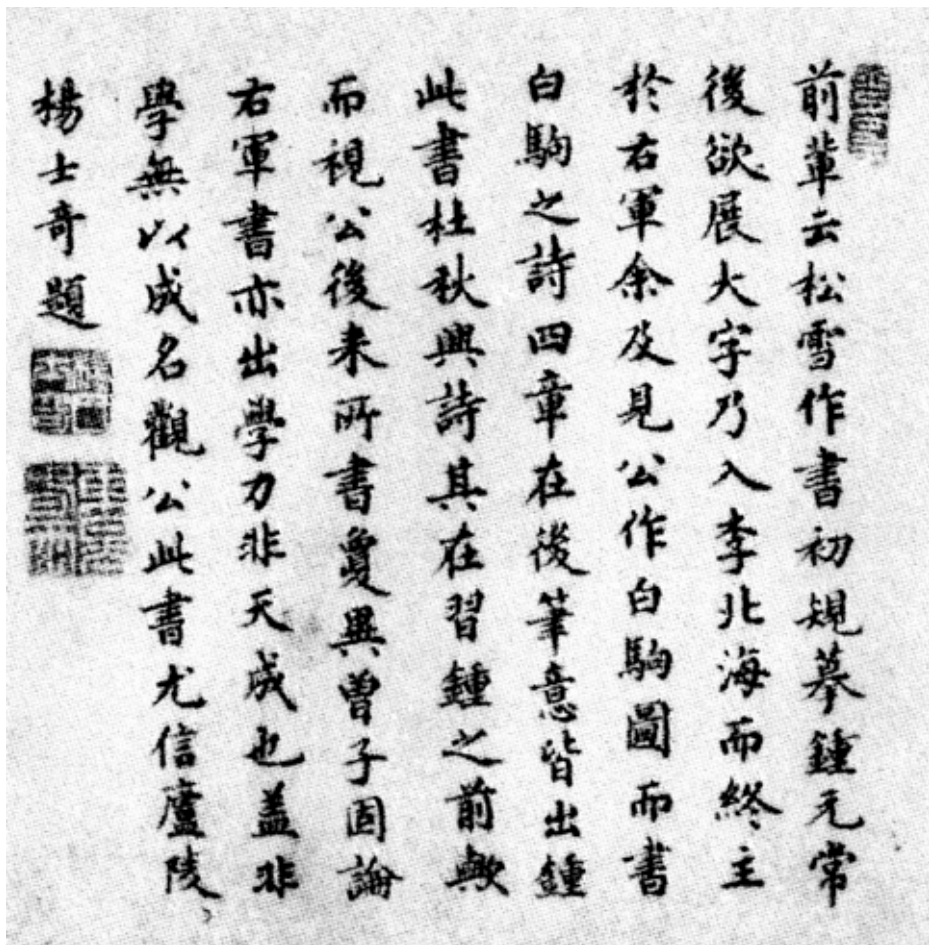 前輩云松雪作書初規摹鍾元常
後欲展大字乃入李北海而終主
於右軍余及見公作白駒圖而書
白駒之詩四章在後筆意皆出鍾
此書杜秋興詩其在習鍾之前歟
而視公後来所書敻異曾子固論
右軍書亦出學力非天成也盖非
學無以成名觀公此書尤信廬陵
楊士奇題